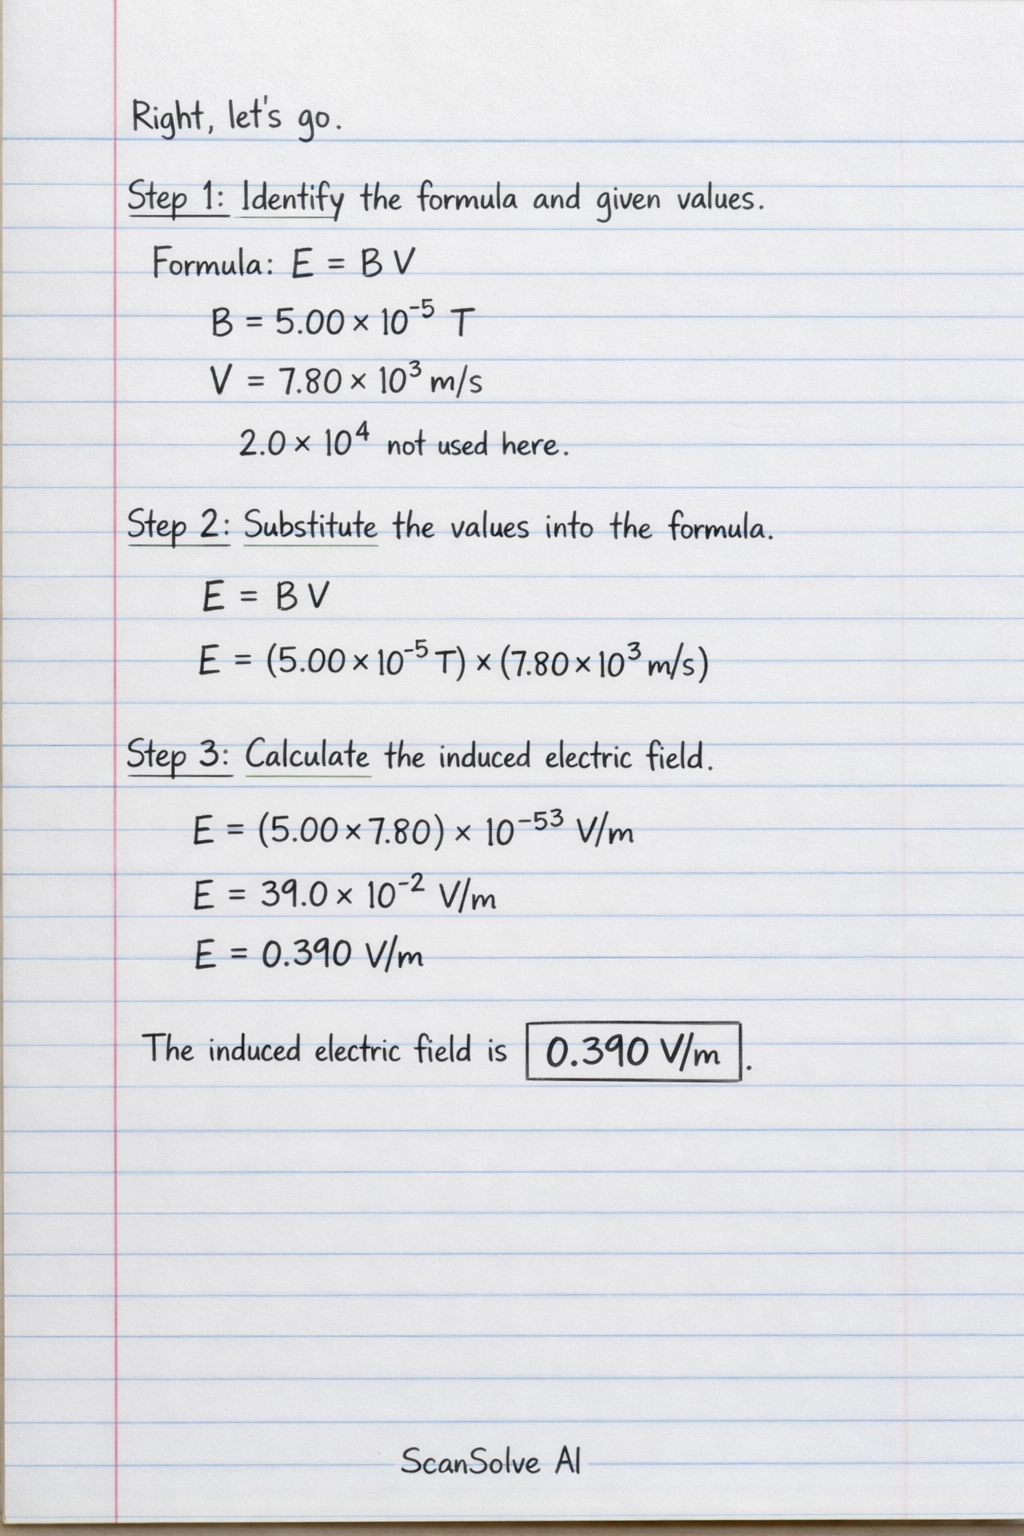 Right, let's go.
Step 1: Identify the formula and given values.
Formula: E = B V
B = 5.00 × 10⁻⁵ T
V = 7.80 × 10³ m/s
2.0 × 10⁴ not used here.
Step 2: Substitute the values into the formula.
E = B V
E = (5.00 × 10⁻⁵ T) × (7.80 × 10³ m/s)
Step 3: Calculate the induced electric field.
E = (5.00 × 7.80) × 10⁻⁵³ V/m
E = 39.0 × 10⁻² V/m
E = 0.390 V/m
The induced electric field is 0.390 V/m.
ScanSolve AI